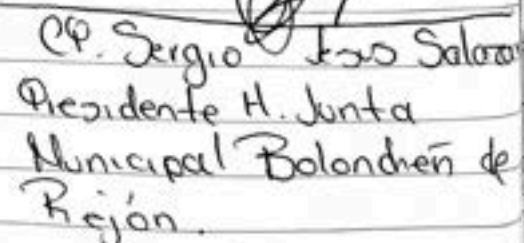 CP. Sergio Jesus Salazar
Presidente H. Junta
Municipal Bolonchen de
Rejón.